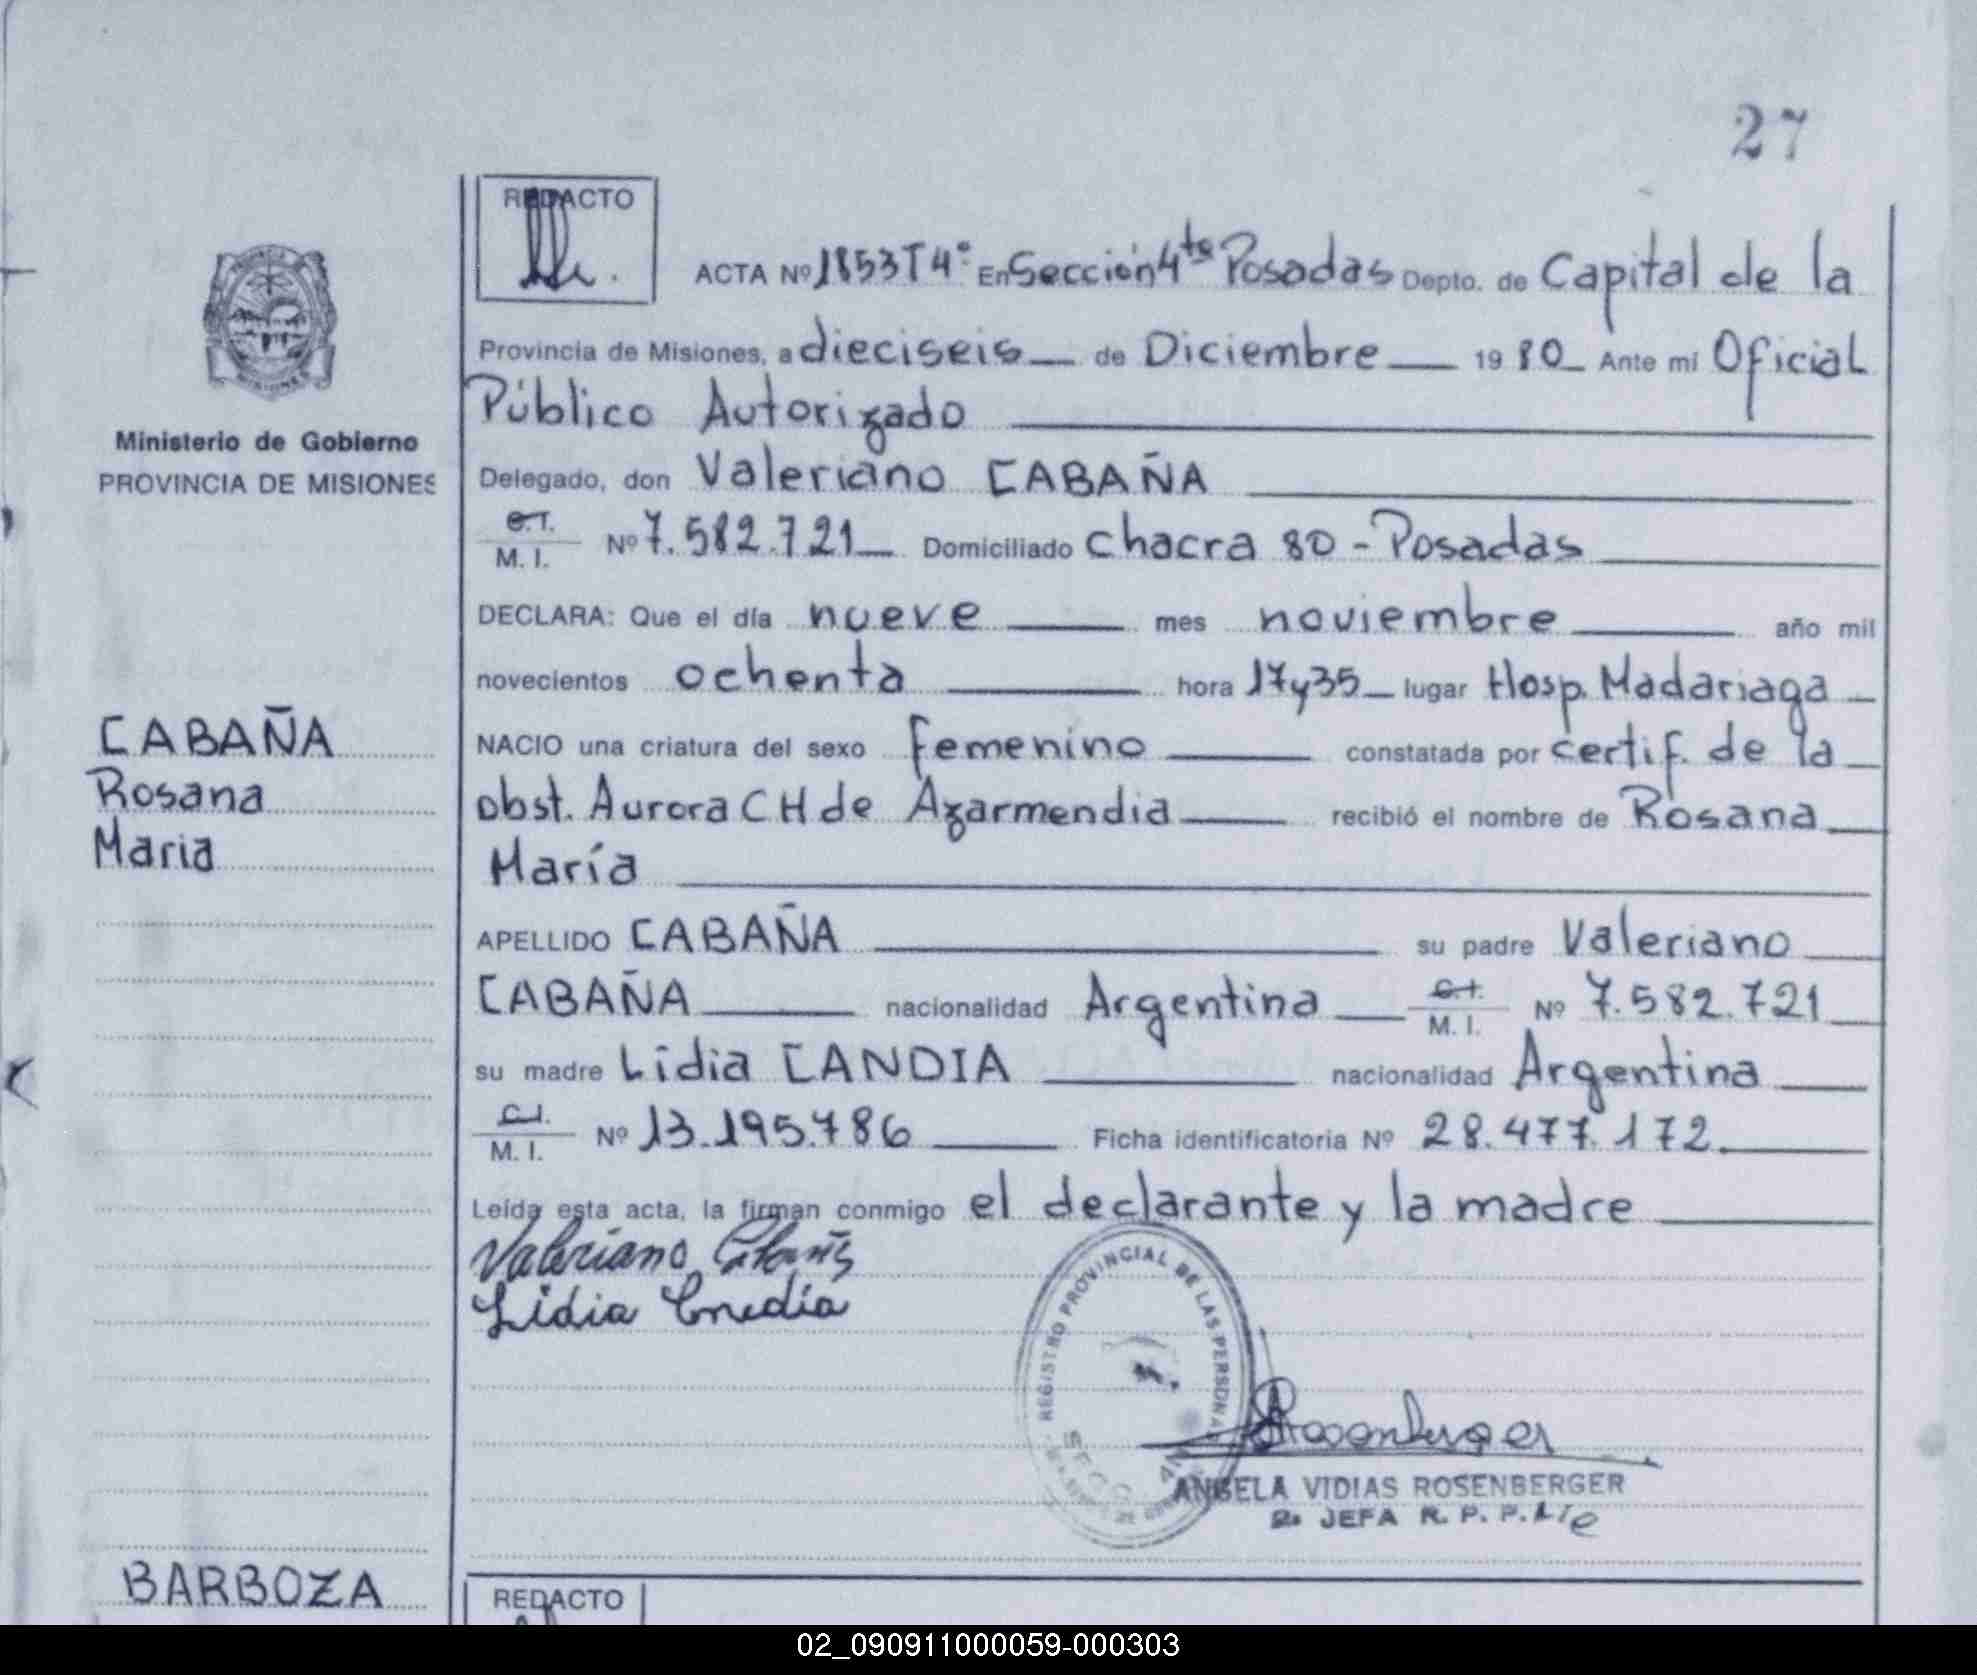 27
REDACTO
ACTA Nº 1853 T 4º En Sección 4ta Posadas Depto. de Capital de la
Provincia de Misiones, a dieciseis de Diciembre 1980 Ante mi Oficial
Público Autorizado
Ministerio de Gobierno
PROVINCIA DE MISIONES
Delegado, don Valeriano CABAÑA
C.I.
M. I. Nº 7.582.721 Domiciliado chacra 80 - Posadas
DECLARA: Que el día nueve mes noviembre año mil
novecientos ochenta hora 17 y 35 lugar Hosp. Madariaga
CABAÑA
Rosana
Maria
NACIO una criatura del sexo femenino constatada por certif. de la
obst. Aurora CH de Azarmendia recibió el nombre de Rosana
María
APELLIDO CABAÑA su padre Valeriano
CABAÑA nacionalidad Argentina C.I. M. I. Nº 7.582.721
su madre Lidia CANDIA nacionalidad Argentina
C.I.
M. I. Nº 13.195.786 Ficha identificatoria Nº 28.477.172
Leída esta acta, la firman conmigo el declarante y la madre
Valeriano Cabaña
Lidia Candia
REGISTRO PROVINCIAL DE LAS PERSONAS
Rosenberger
ANGELA VIDIAS ROSENBERGER
JEFA R. P. P.
BARBOZA
REDACTO
02_090911000059-000303